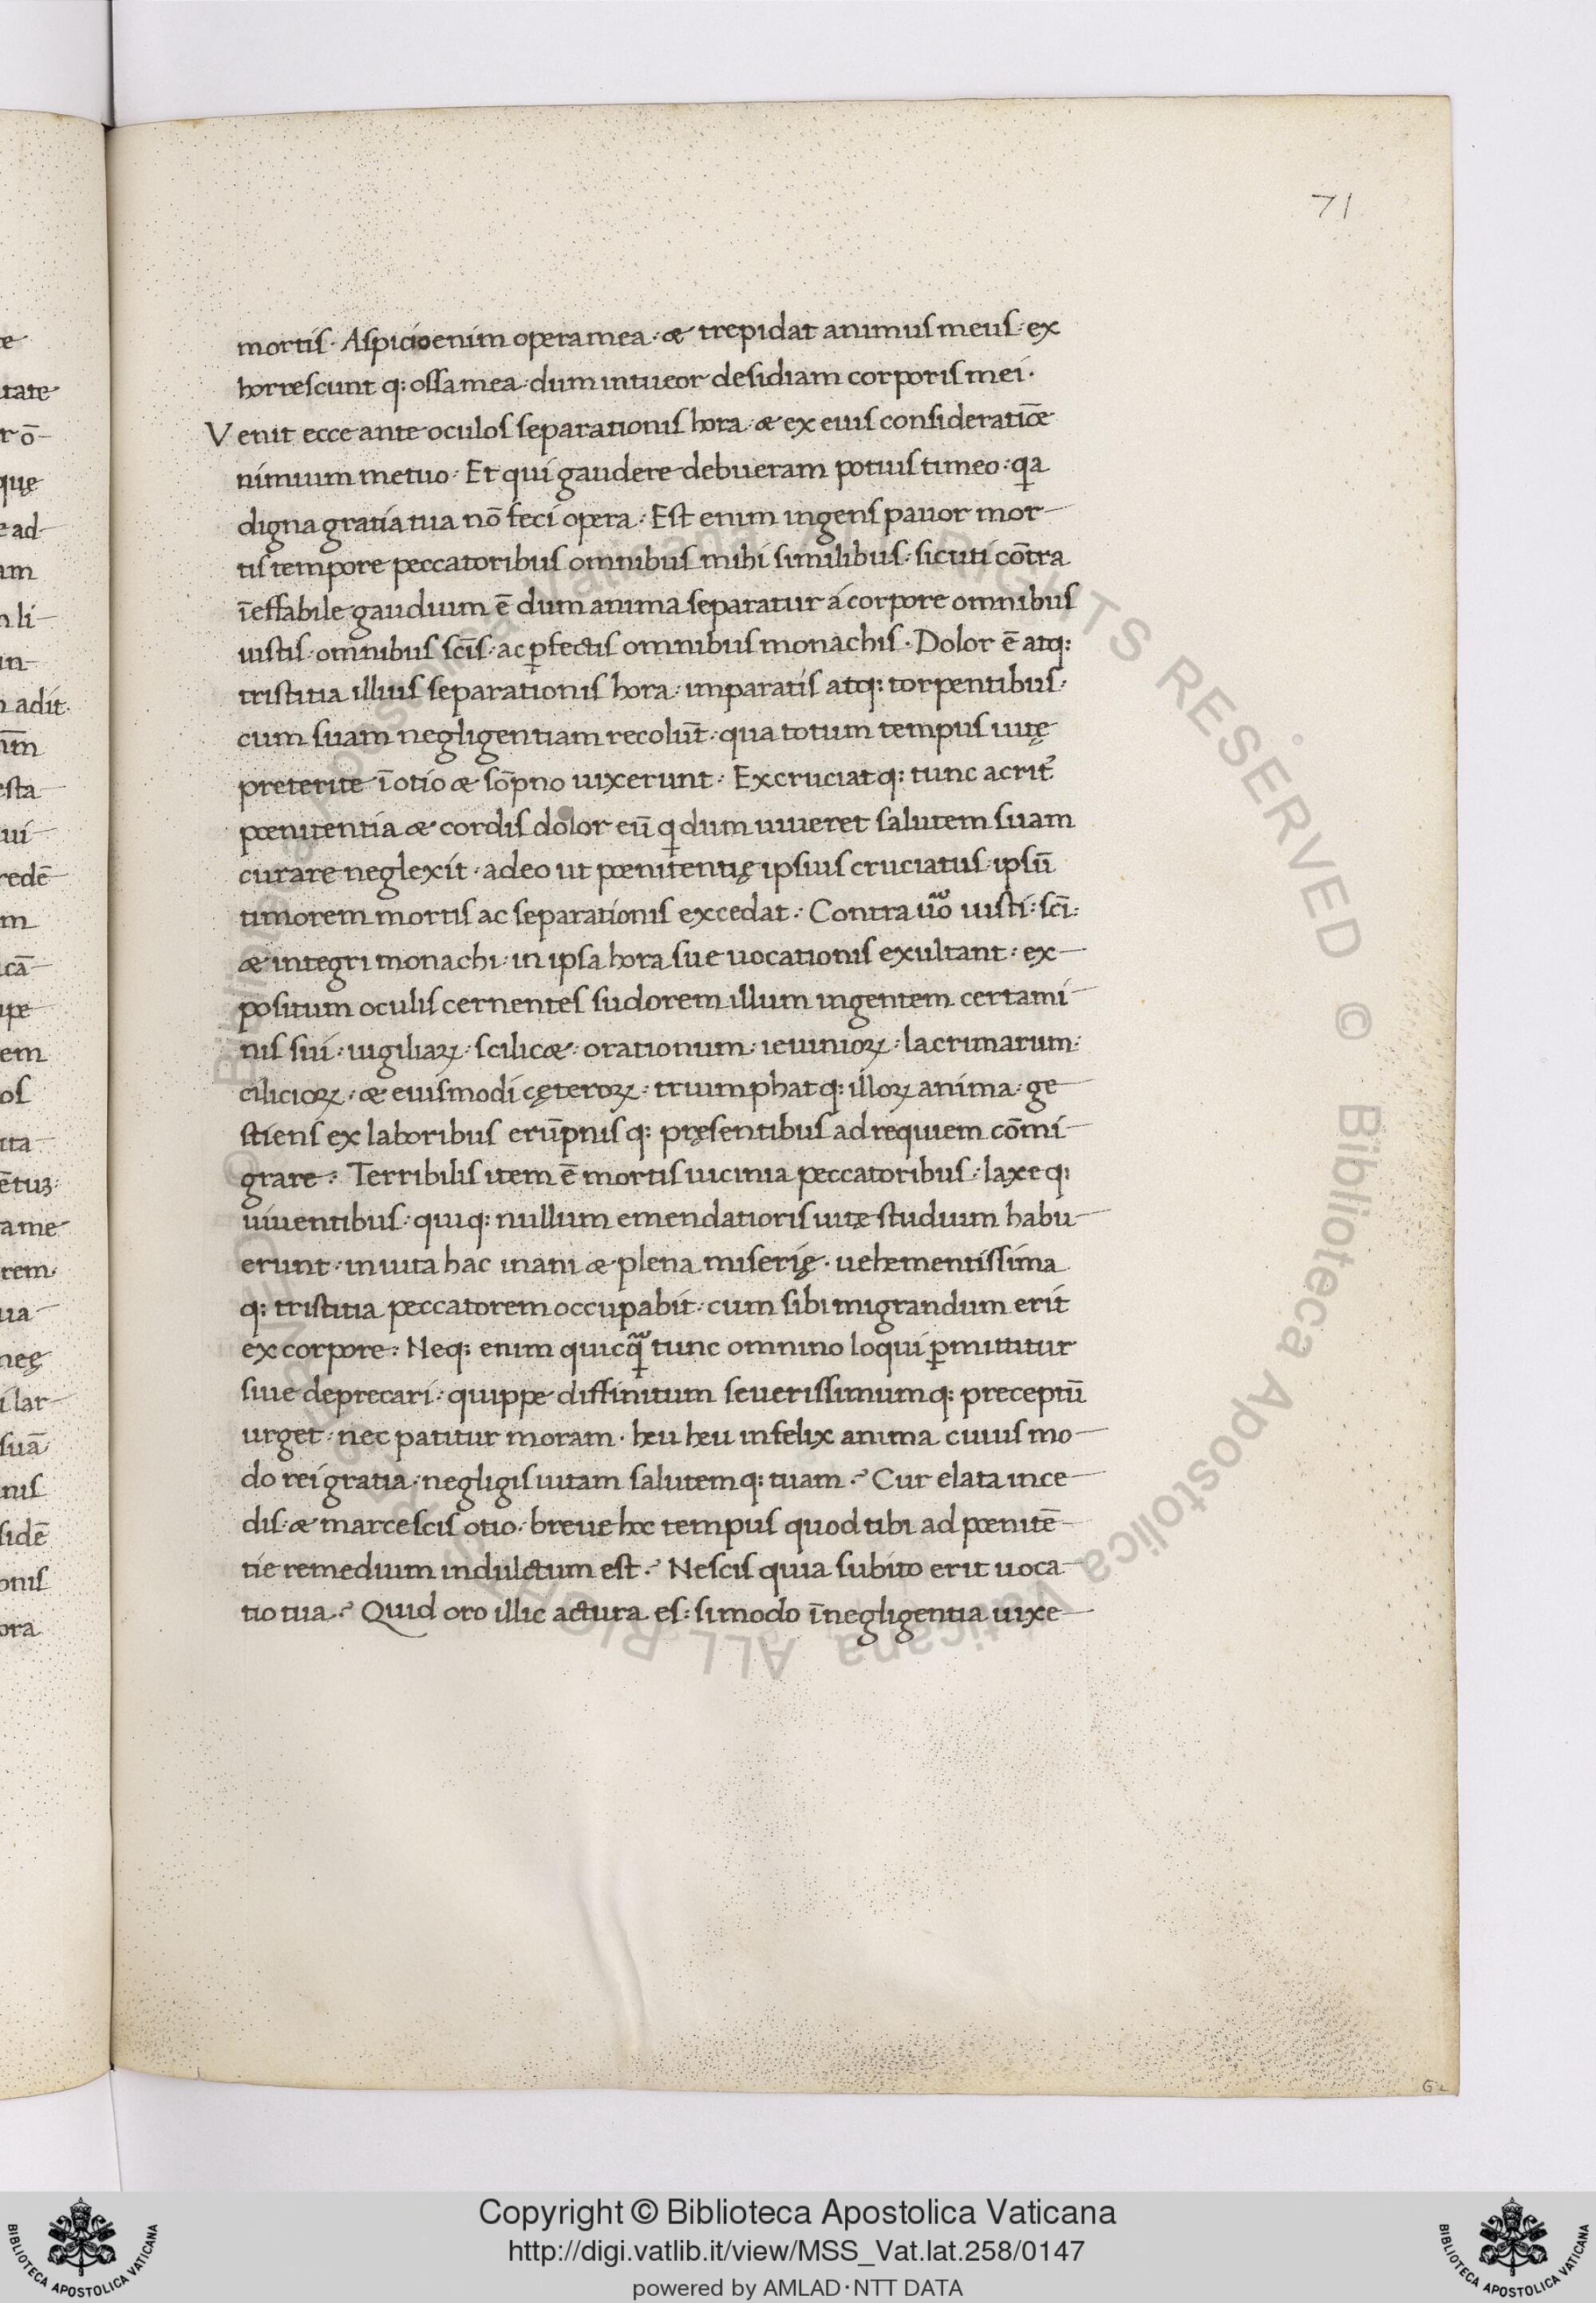 71
mortis· Aspicio enim opera mea·: & trepidat animus meus·: ex
horrescunt q: ossa mea·: dum intueor desidiam corporis mei·
Venit ecce ante oculos separationis hora·: & ex eius consideratiōe
nimium metuo·: Et qui gaudere debueram potius timeo·: qa
digna gratia tua nō feci opera·: Est enim ingens pauor mor-
tis tempore peccatoribus omnibus mihi similibus·: sicuti cōtra
īeffabile gaudium ē dum anima separatur á corpore omnibus
iustis·: omnibus scīs·: ac ꝑfectis omnibus monachis· Dolor ē atq:
tristitia illius separationis hora·: imparatis atq: torpentibus·:
cum suam negligentiam recolūt·: qua totum tempus uitę
preterite ī otio & sōpno uixerunt·: Excruciat q: tunc acrit᷑
poenitentia & cordis dolor eū qi dum uiueret salutem suam
curare neglexit· adeo ut poenitentię ipsius cruciatus·: ipsū
timorem mortis ac separationis excedat·: Contra uoᷓ iusti·: scī·:
& integri monachi·: in ipsa hora sue uocationis exultant·: ex-
positum oculis cernentes sudorem illum ingentem certami-
nis sui·: uigiliaꝝ·: scilic&·: orationum·: ieiunioꝝ·: lacrimarum·:
cilicioꝝ·: & eiusmodi cęteroꝝ·: triumphat q: illoꝝ anima·: ge-
stiens ex laboribus erūpnis q: pręsentibus ad requiem cōmi-
grare·: Terribilis item ē mortis uicinia peccatoribus·: laxe q:
uiuentibus·: quiq: nullum emendatioris uitę studium habu-
erunt·: in uita hac inani & plena miserię· uehementissima
q: tristitia peccatorem occupabit·: cum sibi migrandum erit
ex corpore·: Neq: enim quicqᷓ tunc omnino loqui ꝑmittitur
siue deprecari·: quippe diffinitum seuerissimumq: preceptū
urget·: nec patitur moram· heu heu infelix anima cuius mo-
do rei gratia·: negligis uitam salutemq: tuam·? Cur elata ince-
dis·: & marcescis otio·: breue hoc tempus quod tibi ad poenitē-
tie remedium indulctum est·? Nescis quia subito erit uoca-
tio tua·? Quid oro illic actura es·: si modo ī negligentia uixe-
G 2
Copyright © Biblioteca Apostolica Vaticana
http://digi.vatlib.it/view/MSS_Vat.lat.258/0147
powered by AMLAD·NTT DATA